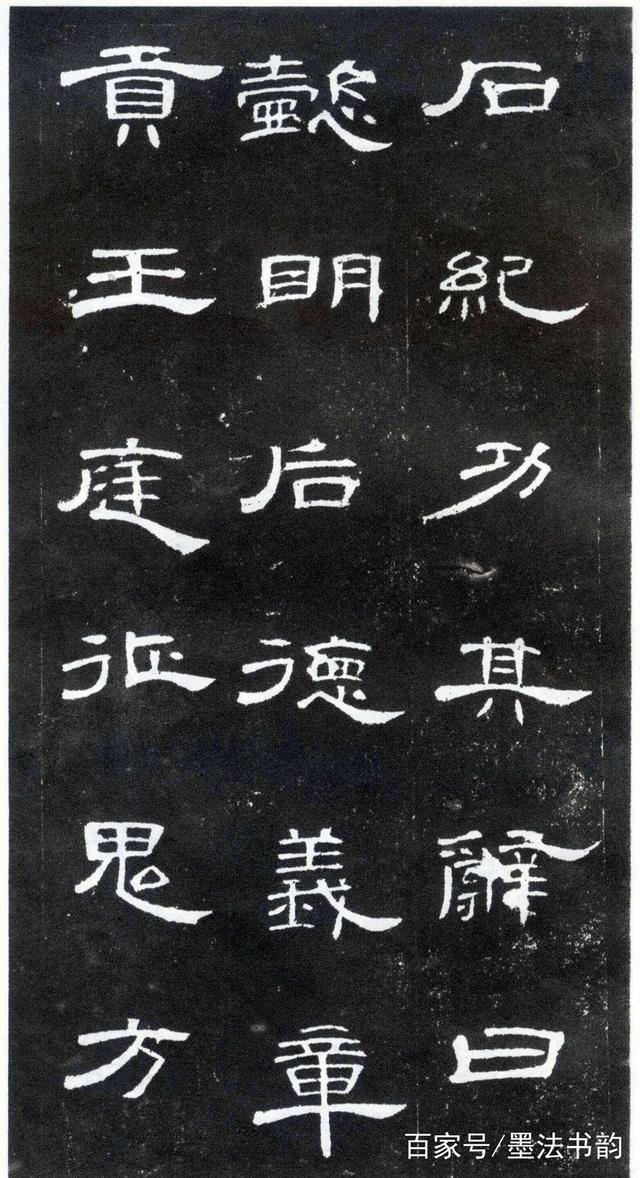 石紀功其辭曰
懿明后德義章
貢王庭征鬼方
百家号/墨法书韵